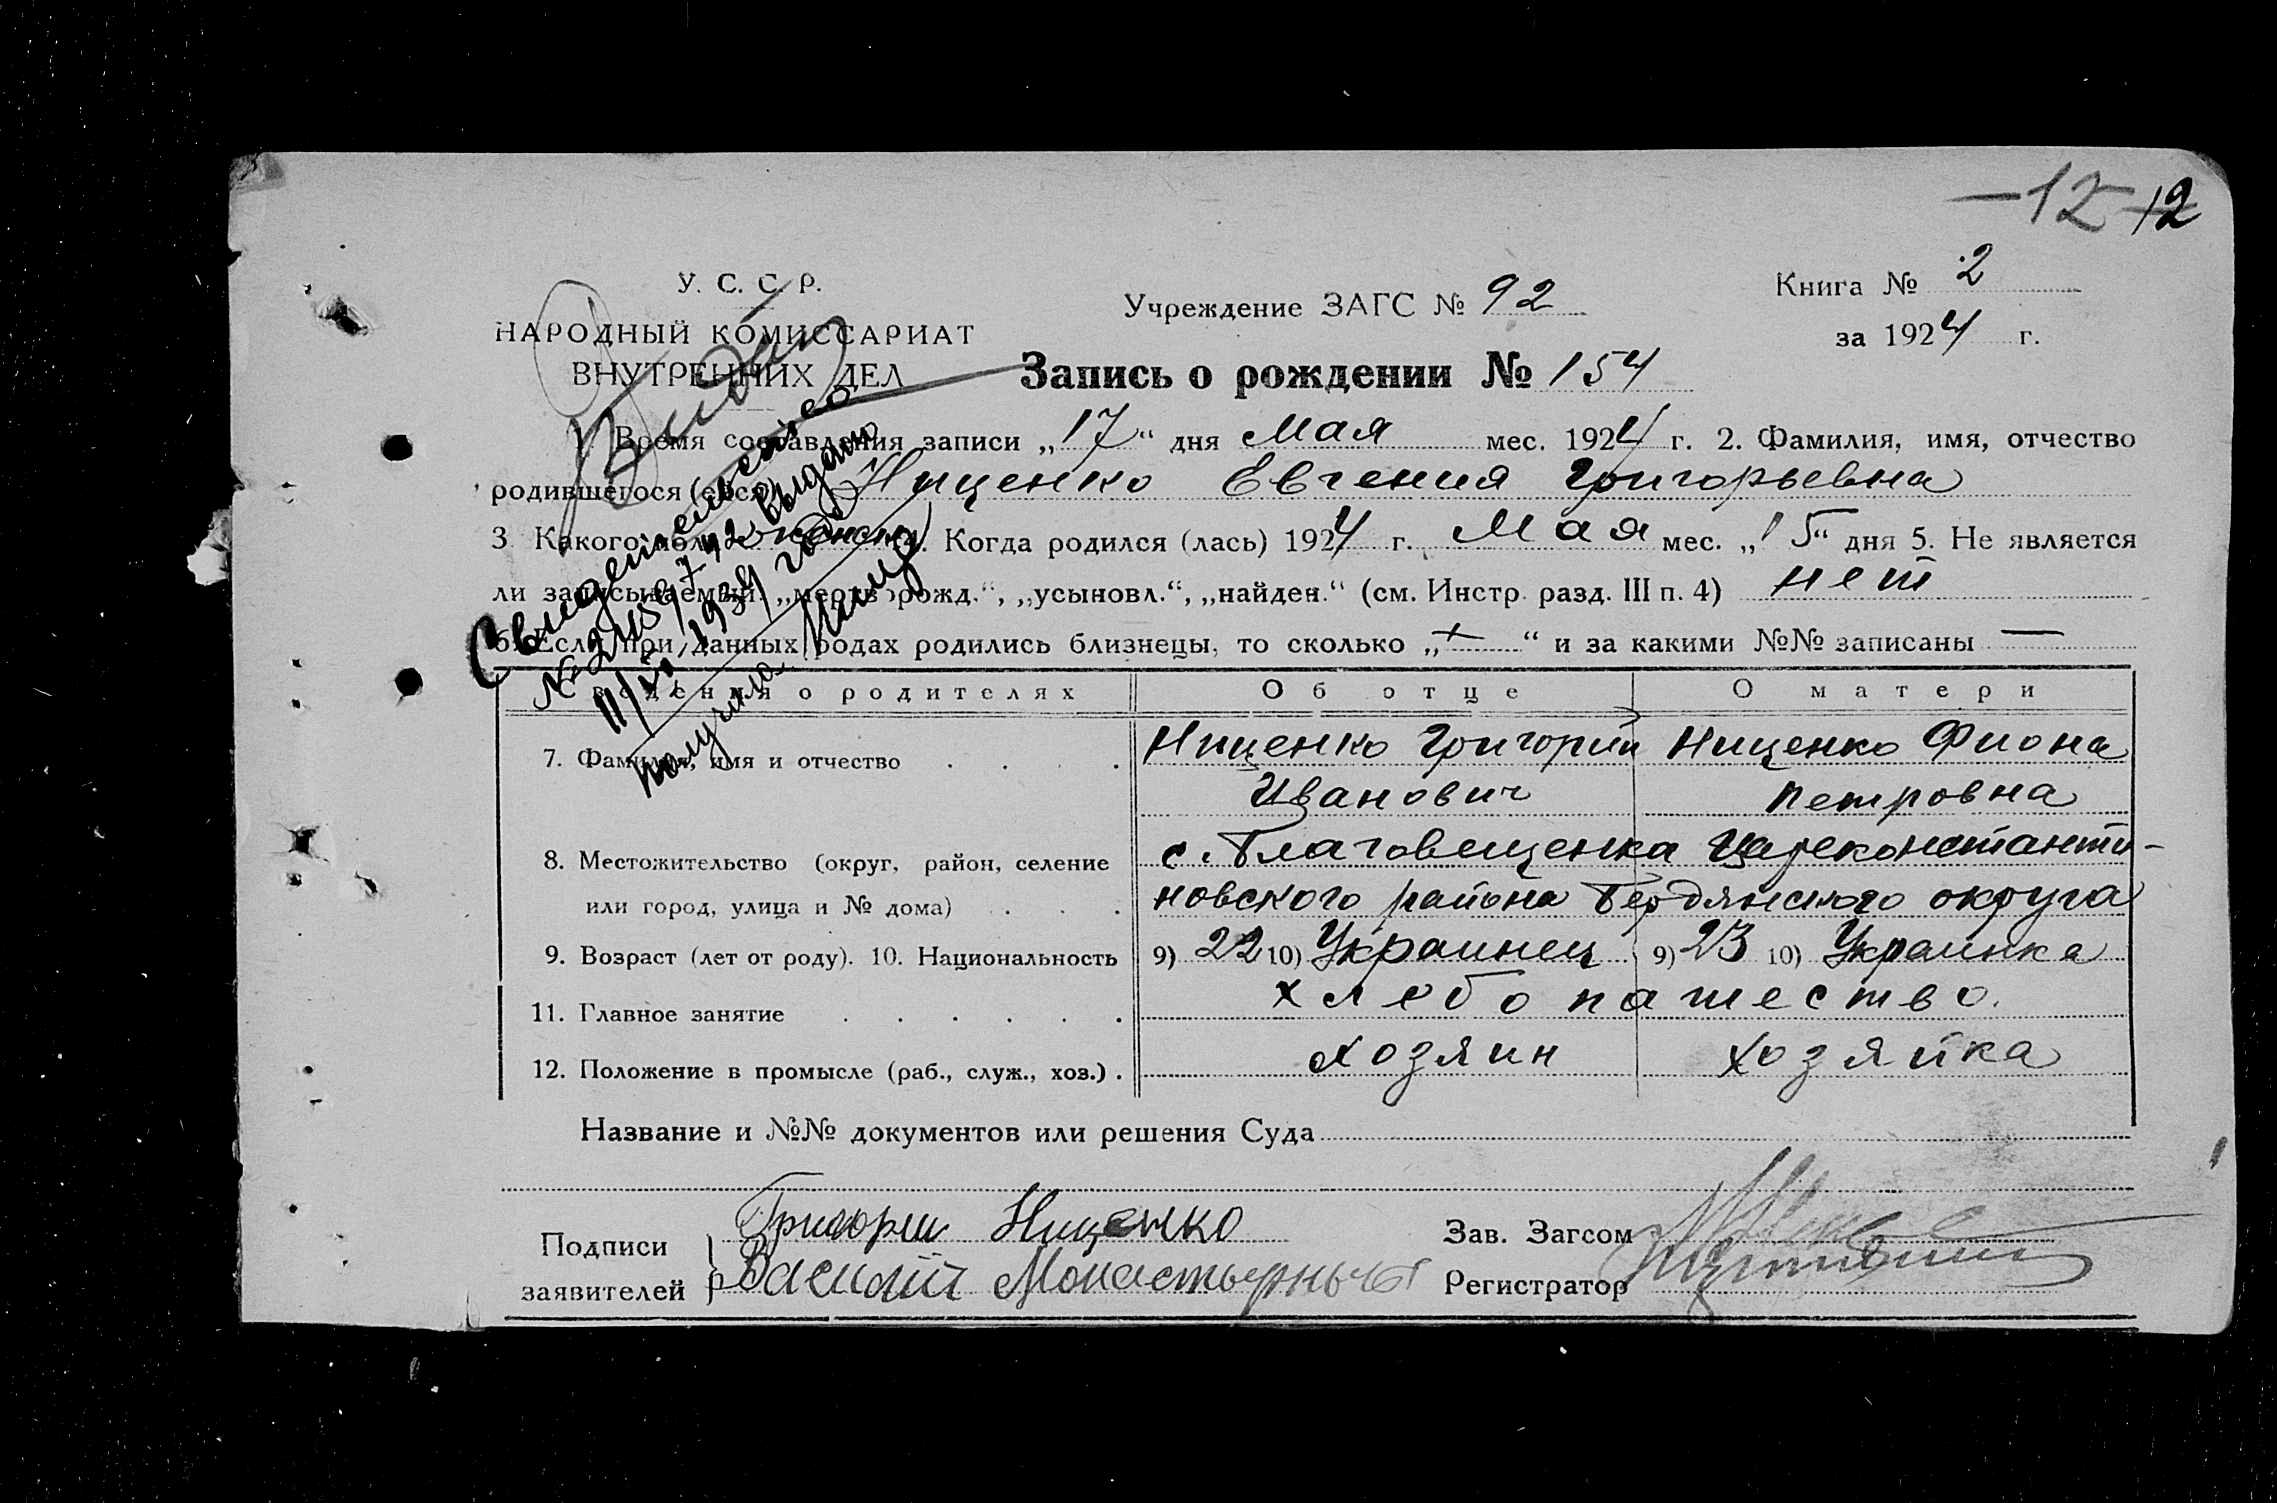 -12- 12
У. С. С. Р.
НАРОДНЫЙ КОМИССАРИАТ
ВНУТРЕННИХ ДЕЛ
Учреждение ЗАГС № 92
Книга № 2
за 1924 г.
Запись о рождении № 154
1. Время составления записи „17“ дня Мая мес. 1924 г. 2. Фамилия, имя, отчество
родившегося (ейся) Ниценко Евгения Григорьевна
3. Какого пола женск. 4. Когда родился (лась) 1924 г. Мая мес. „15“ дня 5. Не является
ли записываемый: „мертворожд.“, „усыновл.“, „найден.“ (см. Инстр. разд. III п. 4) нет
6. Если при данных родах родились близнецы, то сколько „—“ и за какими №№ записаны —
Свидетельство
выдано
1939 года
получила
Сведения о родителях Об отце О матери
7. Фамилия, имя и отчество Ниценко Григорий Ниценко Фиона
Иванович Петровна
8. Местожительство (округ, район, селение с. Благовещенка Цареконстанти-
или город, улица и № дома) новского района Бердянского округа
9. Возраст (лет от роду). 10. Национальность 9) 22 10) Украинец 9) 23 10) Украинка
11. Главное занятие хлебопашество.
12. Положение в промысле (раб., служ., хоз.) хозяин хозяйка
Название и №№ документов или решения Суда
Подписи заявителей
Григории Ниценко
Василий
Зав. Загсом
Регистратор